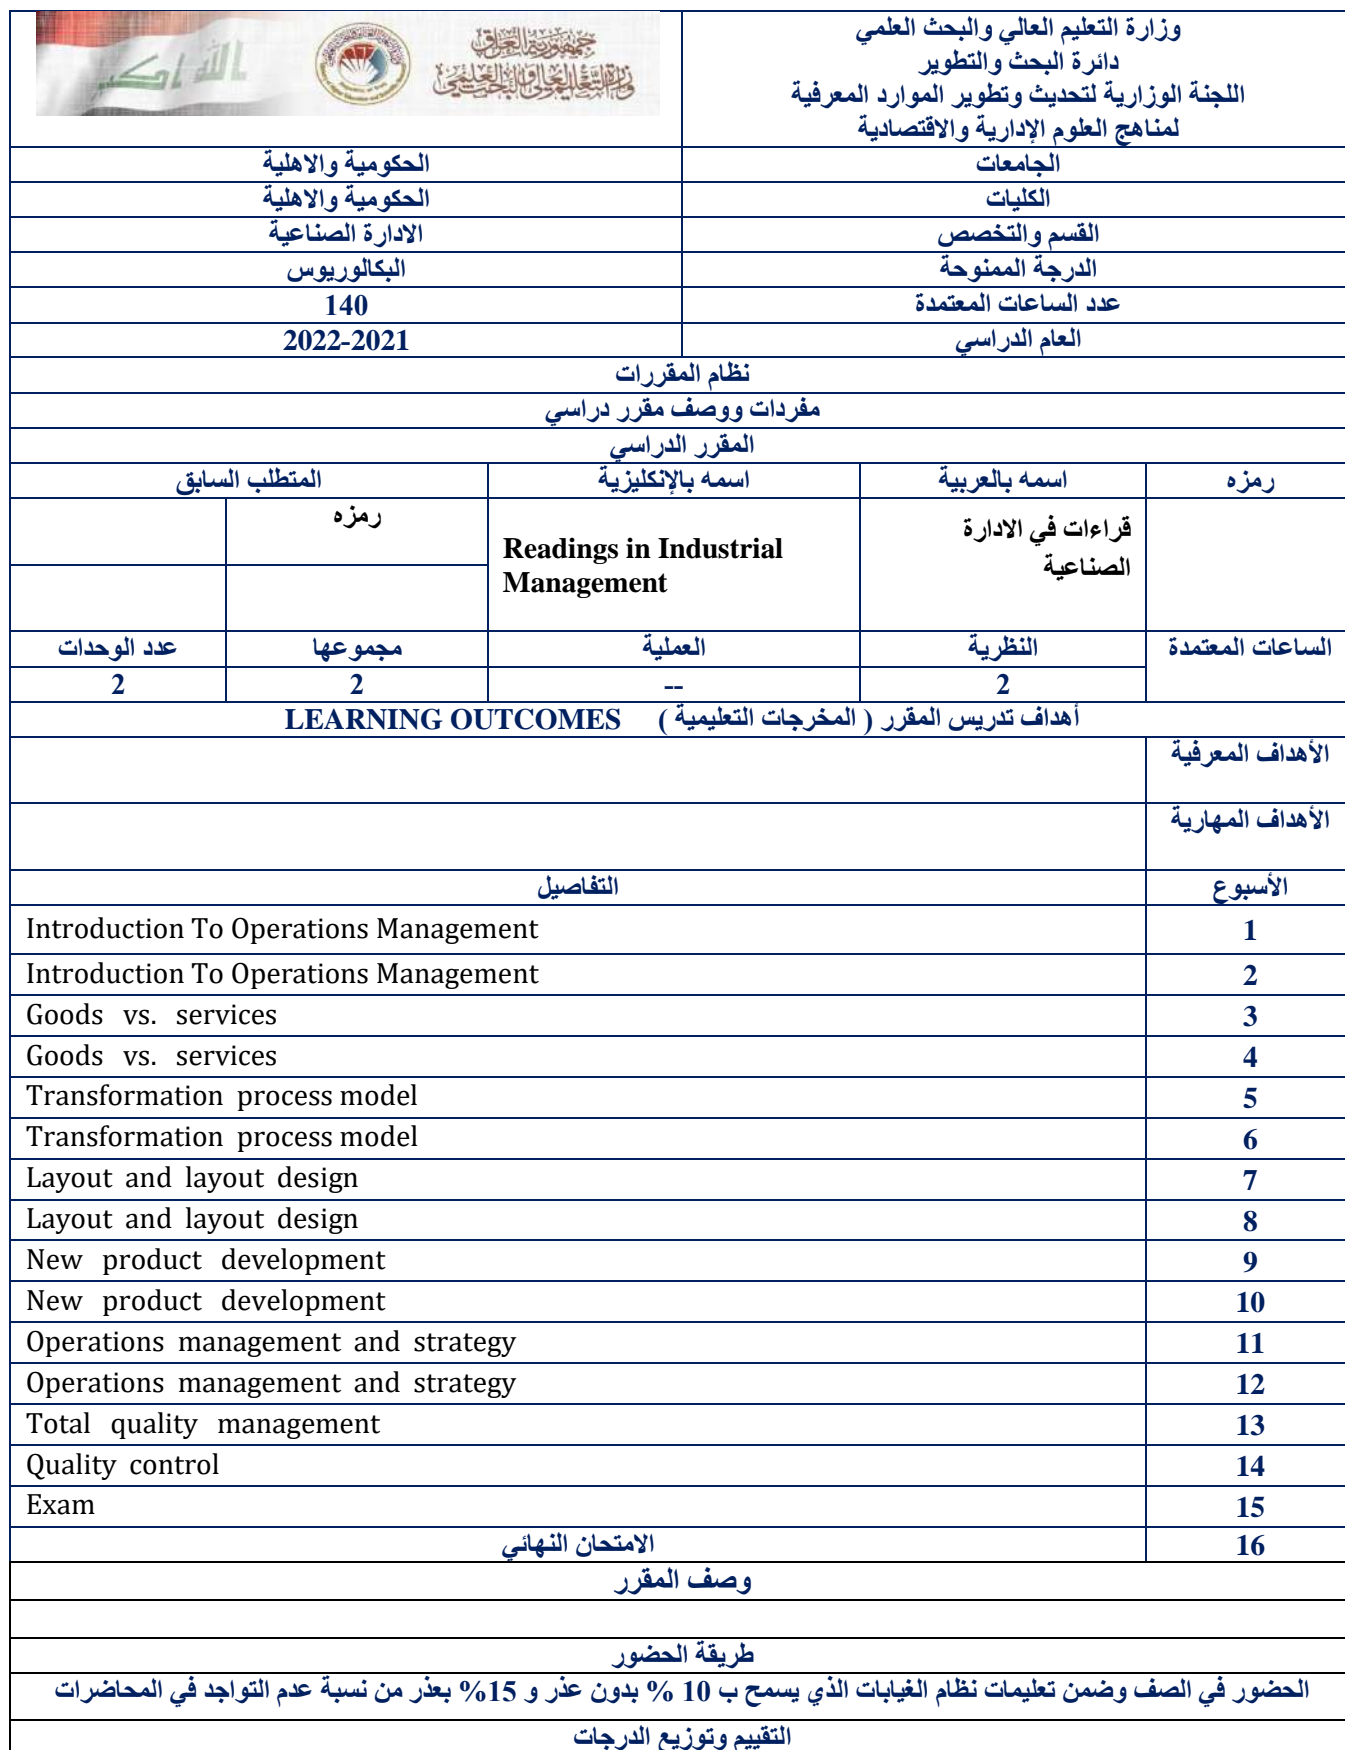 وزارة التعليم العالي والبحث العلمي
دائرة البحث والتطوير
اللجنة الوزارية لتحديث وتطوير الموارد المعرفية
لمناهج العلوم الإدارية والاقتصادية
الله اكبر
جمهورية العراق
وزارة التعليم العالي والبحث العلمي
الجامعات الحكومية والاهلية
الكليات الحكومية والاهلية
القسم والتخصص الادارة الصناعية
الدرجة الممنوحة البكالوريوس
عدد الساعات المعتمدة 140
العام الدراسي 2022-2021
نظام المقررات
مفردات ووصف مقرر دراسي
المقرر الدراسي
رمزه اسمه بالعربية اسمه بالإنكليزية المتطلب السابق
قراءات في الادارة
الصناعية
Readings in Industrial
Management
رمزه
الساعات المعتمدة النظرية العملية مجموعها عدد الوحدات
2 -- 2 2
أهداف تدريس المقرر ( المخرجات التعليمية ) LEARNING OUTCOMES
الأهداف المعرفية
الأهداف المهارية
الأسبوع التفاصيل
1 Introduction To Operations Management
2 Introduction To Operations Management
3 Goods vs. services
4 Goods vs. services
5 Transformation process model
6 Transformation process model
7 Layout and layout design
8 Layout and layout design
9 New product development
10 New product development
11 Operations management and strategy
12 Operations management and strategy
13 Total quality management
14 Quality control
15 Exam
16 الامتحان النهائي
وصف المقرر
طريقة الحضور
الحضور في الصف وضمن تعليمات نظام الغيابات الذي يسمح ب 10 % بدون عذر و 15% بعذر من نسبة عدم التواجد في المحاضرات
التقييم وتوزيع الدرجات